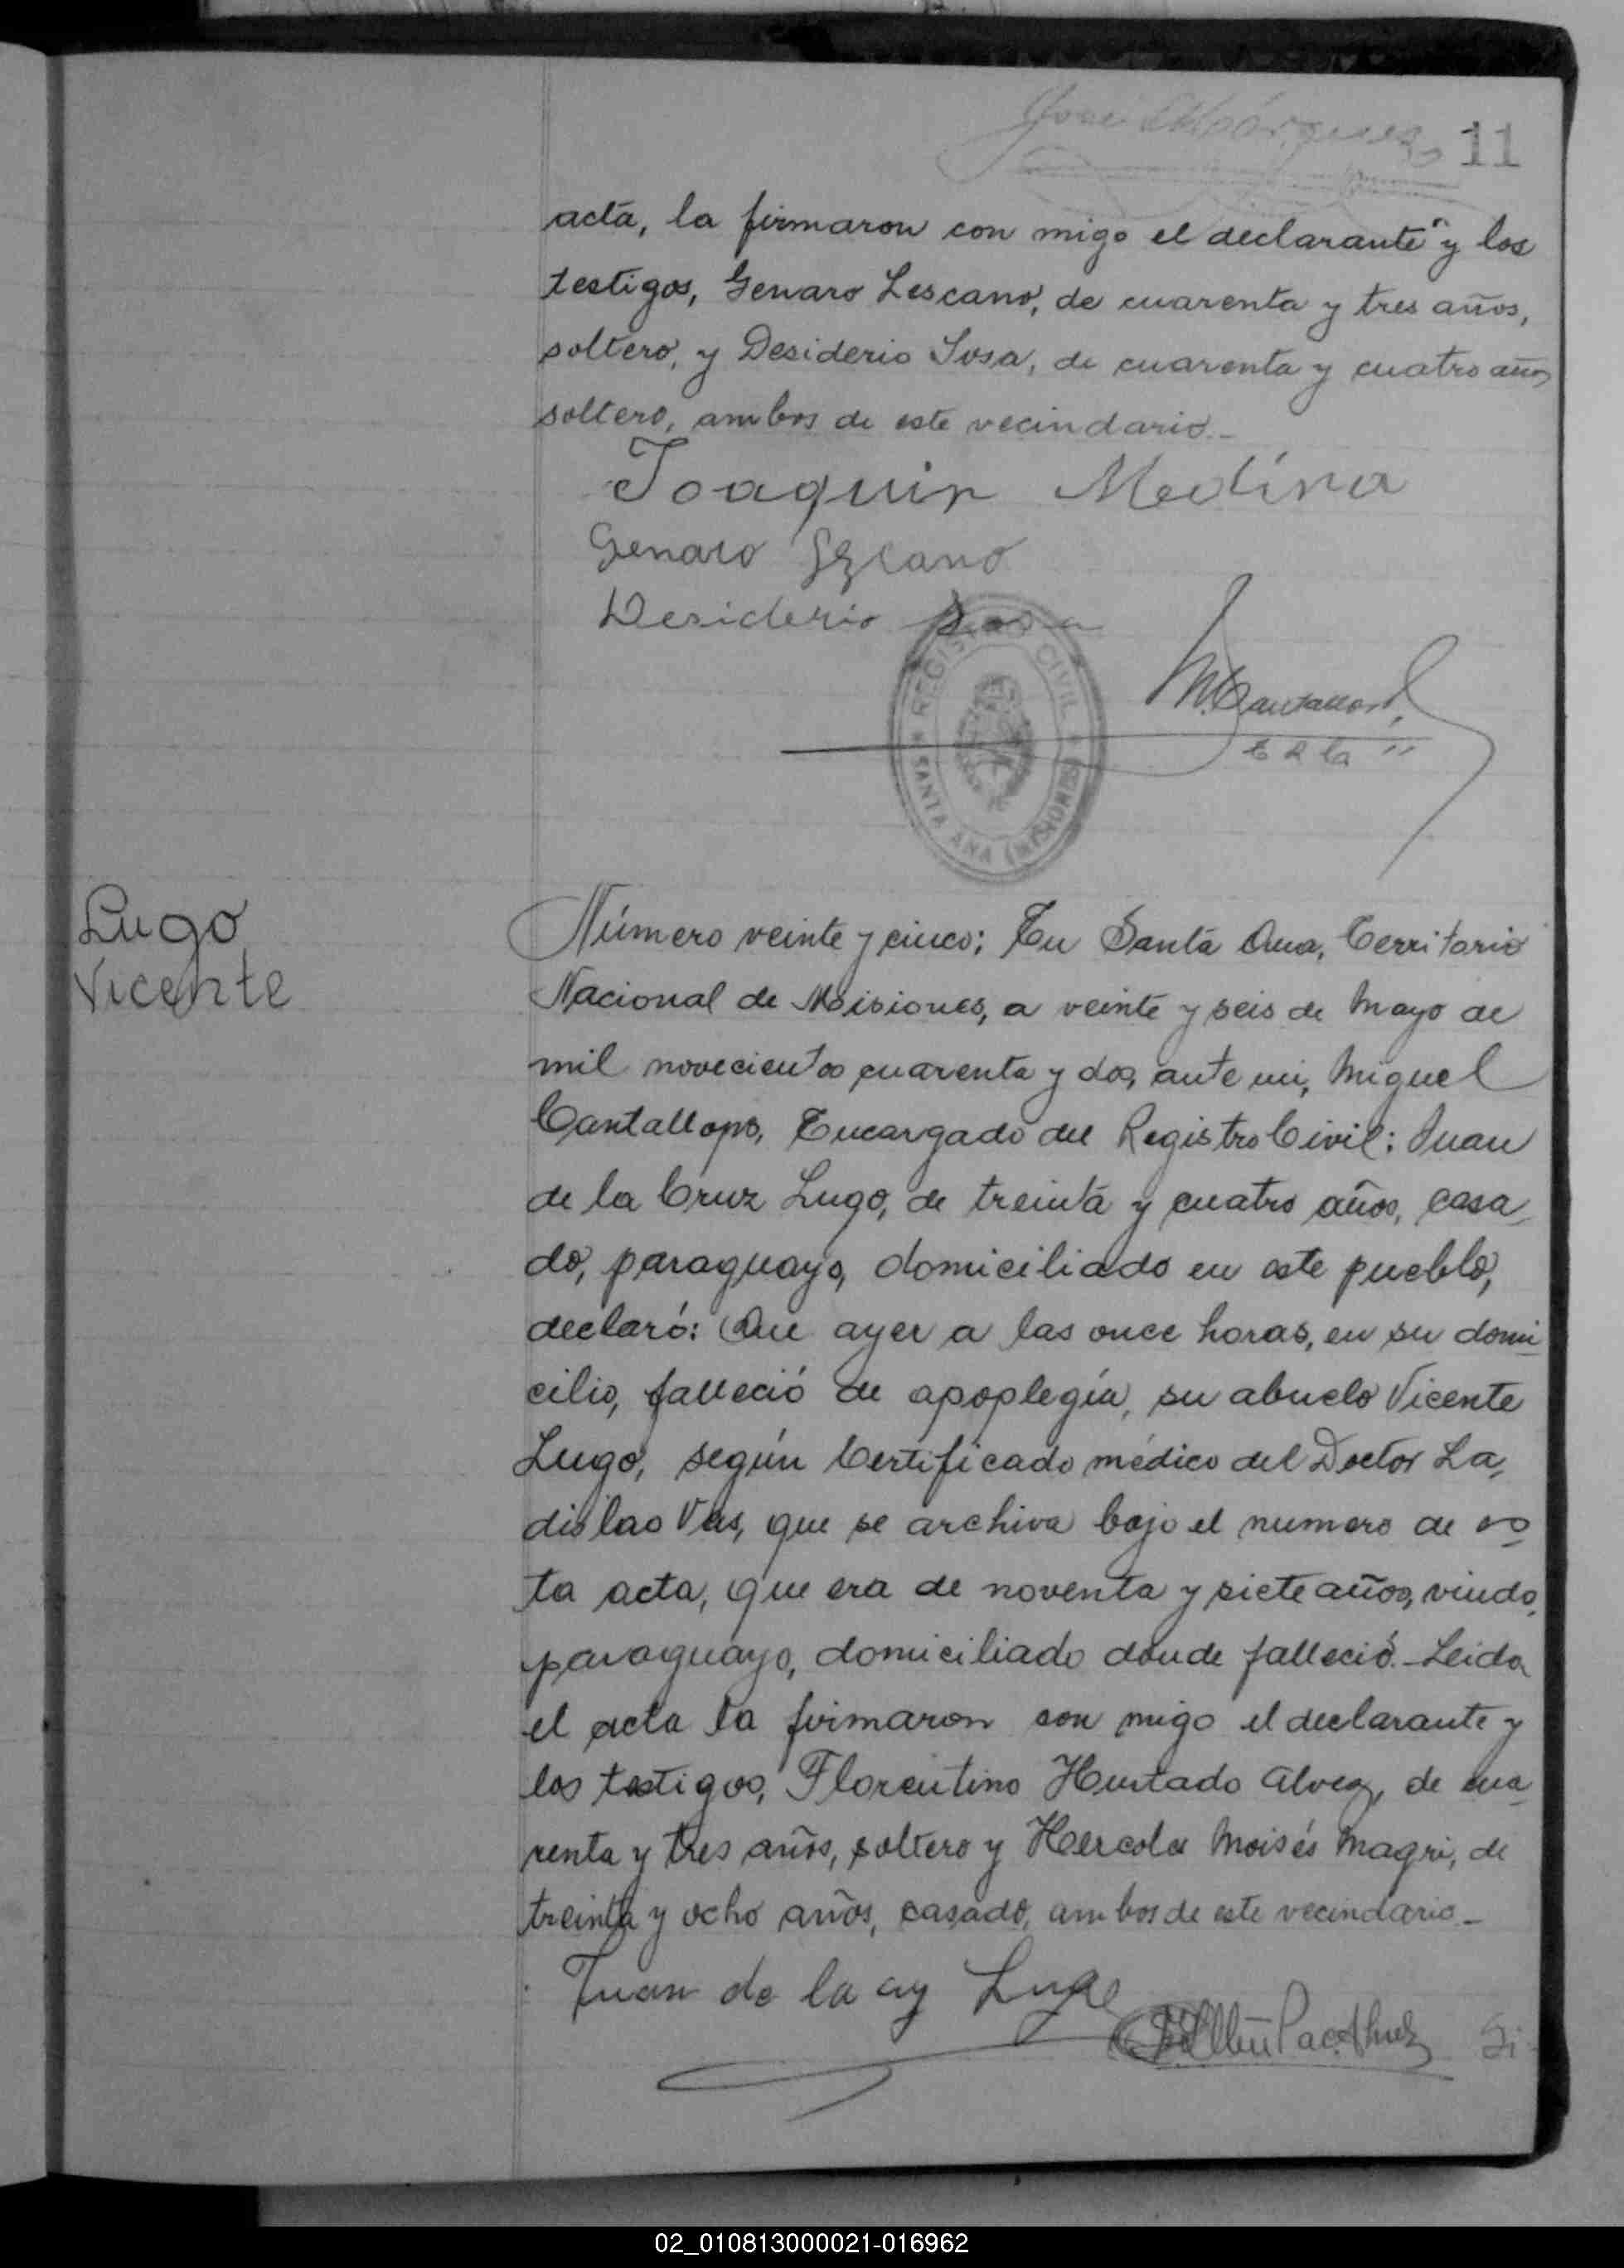 11
acta, la firmaron con migo el declarante y los
testigos, Genaro Lescano, de cuarenta y tres años,
soltero, y Desiderio Sosa, de cuarenta y cuatro años
soltero, ambos de este vecindario.-
Joaquin Medina
Genaro Lezcano
Desiderio Sosa
REGISTRO CIVIL
SANTA ANA (MISIONES)
M. Cantallops
Lugo
Vicente
Número veinte y cinco; En Santa Ana, Territorio
Nacional de Misiones, a veinte y seis de Mayo de
mil novecientos cuarenta y dos, ante mi, Miguel
Cantallops, Encargado del Registro Civil; Juan
de la Cruz Lugo, de treinta y cuatro años, casa-
do, paraguayo, domiciliado en este pueblo,
declaró: Que ayer a las once horas, en su domi-
cilio, falleció de apoplegía, su abuelo Vicente
Lugo, según Certificado médico del Doctor La-
dislao Vas, que se archiva bajo el numero de es-
ta acta, que era de noventa y siete años, viudo,
paraguayo, domiciliado donde falleció.- Leida
el acta la firmaron con migo el declarante y
los testigos, Florentino Hurtado Alvez, de cua-
renta y tres años, soltero y Hercoles Moisés Magri, de
treinta y ocho años, casado, ambos de este vecindario.-
Juan de la Lugo
02_010813000021-016962